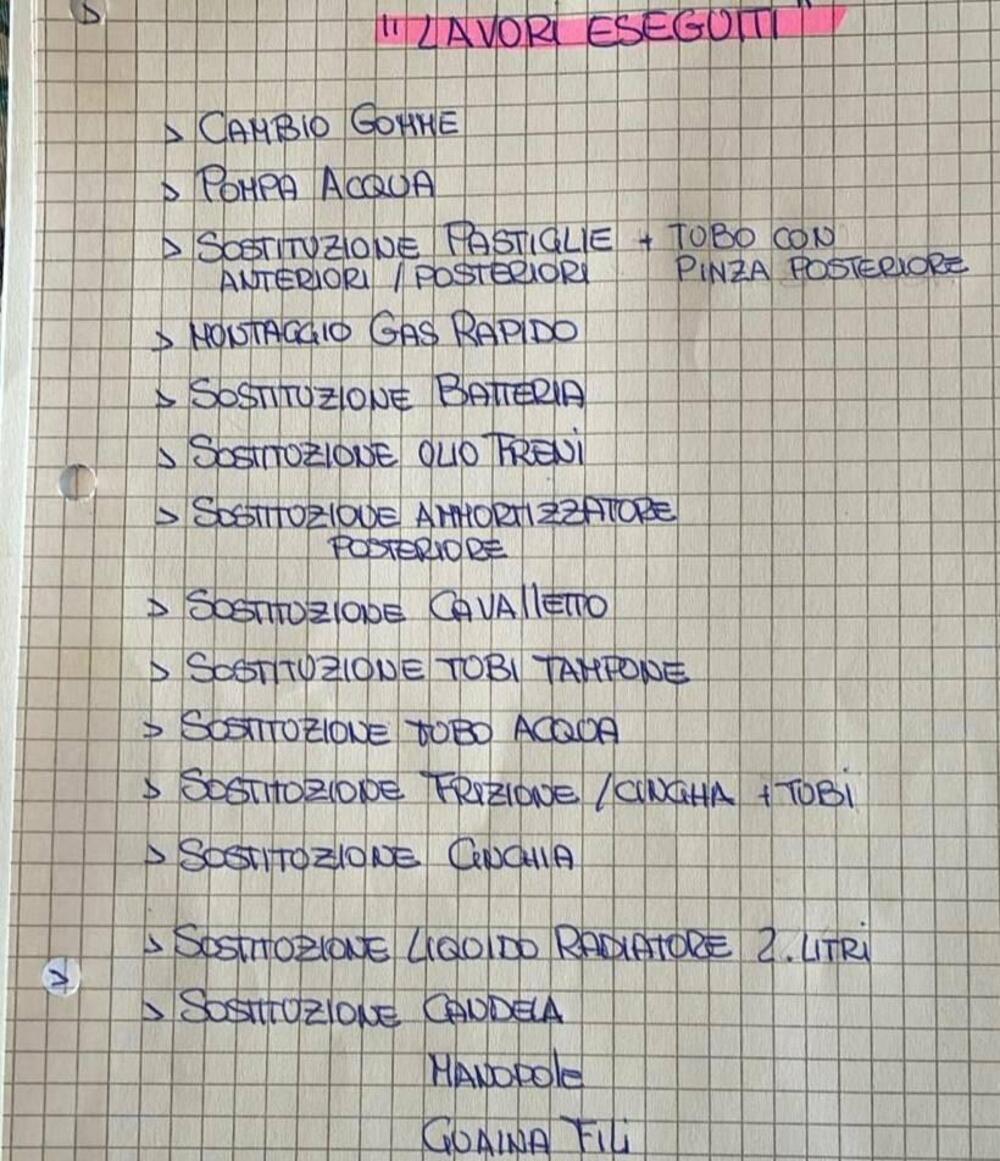 "LAVORI ESEGUITI"
> CAMBIO GOMME
> POMPA ACQUA
> SOSTITUZIONE PASTIGLIE + TUBO CON
ANTERIORI / POSTERIORI PINZA POSTERIORE
> MONTAGGIO GAS RAPIDO
> SOSTITUZIONE BATTERIA
> SOSTITUZIONE OLIO FRENI
> SOSTITUZIONE AMMORTIZZATORE
POSTERIORE
> SOSTITUZIONE CAVALLETTO
> SOSTITUZIONE TUBI TAMPONE
> SOSTITUZIONE TUBO ACQUA
> SOSTITUZIONE FRIZIONE / CINGHIA + TUBI
> SOSTITUZIONE CINGHIA
> SOSTITUZIONE LIQUIDO RADIATORE 2. LITRI
> SOSTITUZIONE CANDELA
MANOPOLE
GUAINA FILI